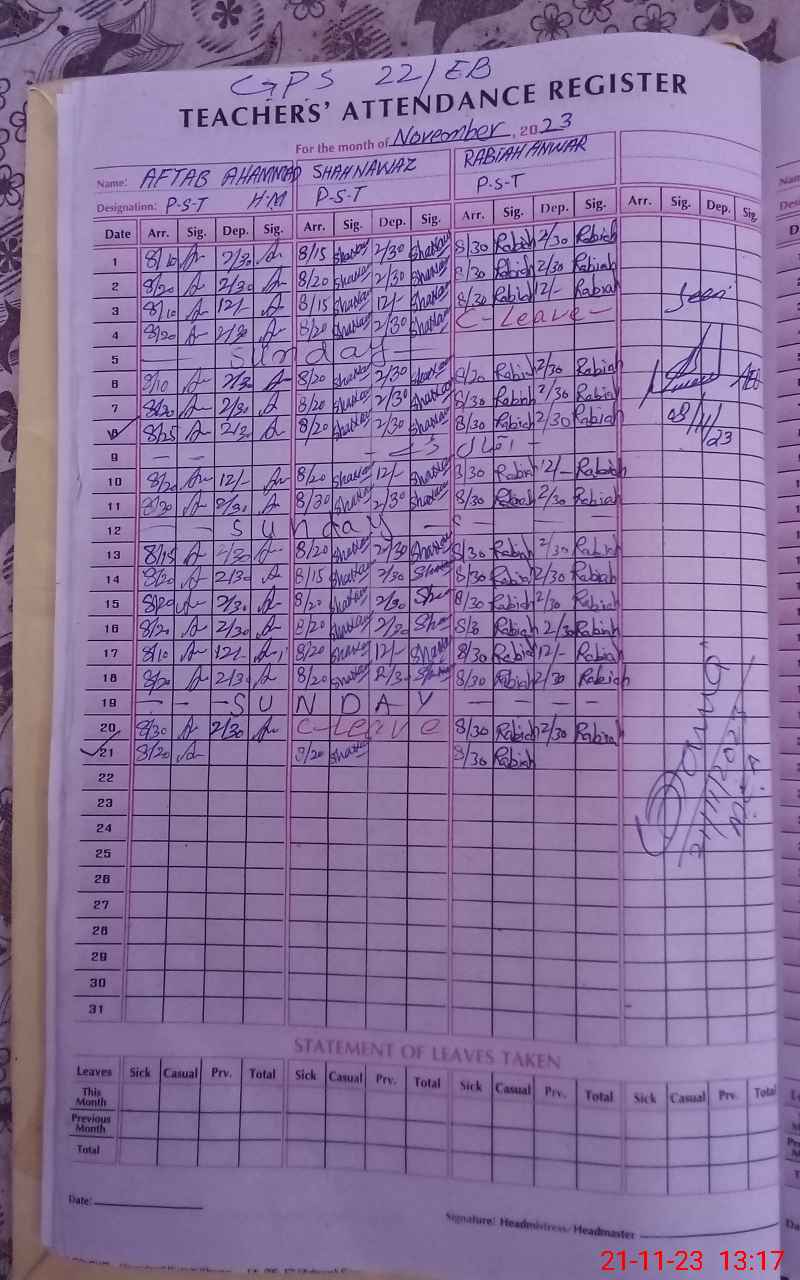 GPS 22/EB
TEACHERS' ATTENDANCE REGISTER
For the month of November, 2023
Name: AFTAB AHAMMAD SHAHNAWAZ RABIAH ANWAR
Designation: P-S-T H-M P-S-T P-S-T
Date Arr. Sig. Dep. Sig. Arr. Sig. Dep. Sig. Arr. Sig. Dep. Sig. Arr. Sig. Dep. Sig.
1 8/10 2/30 8/15 2/30 8/30 Rabiah 2/30 Rabiah
2 8/20 2/30 8/20 2/30 8/30 Rabiah 2/30 Rabiah
3 8/10 12/- 8/15 12/- 8/30 Rabiah 12/- Rabiah Seen
4 8/20 2/30 8/20 2/30 C-Leave-
5 — Sunday —
6 8/10 2/30 8/20 2/30 8/20 Rabiah 2/30 Rabiah
7 8/20 2/30 8/20 2/30 8/30 Rabiah 2/30 Rabiah AEO
8 8/25 2/30 8/20 2/30 8/30 Rabiah 2/30 Rabiah 08/11/23
9
10 8/20 12/- 8/20 12/- 8/30 Rabiah 12/- Rabiah
11 8/20 2/30 8/30 2/30 8/30 Rabiah 2/30 Rabiah
12 — — Sunday — — —
13 8/15 2/30 8/20 2/30 8/30 Rabiah 2/30 Rabiah
14 8/20 2/30 8/15 2/30 8/30 Rabiah 2/30 Rabiah
15 8/20 2/30 8/20 2/30 8/30 Rabiah 2/30 Rabiah
16 8/20 2/30 8/20 2/30 8/30 Rabiah 2/30 Rabiah
17 8/10 12/- 8/20 12/- 8/30 Rabiah 12/- Rabiah
18 8/20 2/30 8/20 2/30 8/30 Rabiah 2/30 Rabiah
19 - - - SUNDAY - - - -
20 8/30 2/30 C-Leave 8/30 Rabiah 2/30 Rabiah
21 8/20 8/20 8/30 Rabiah 21/11/2023
22
23
24
25
26
27
28
29
30
31
STATEMENT OF LEAVES TAKEN
Leaves Sick Casual Prv. Total Sick Casual Prv. Total Sick Casual Prv. Total Sick Casual Prv. Total
This Month
Previous Month
Total
Date:
Signature: Headmistress/Headmaster
21-11-23 13:17